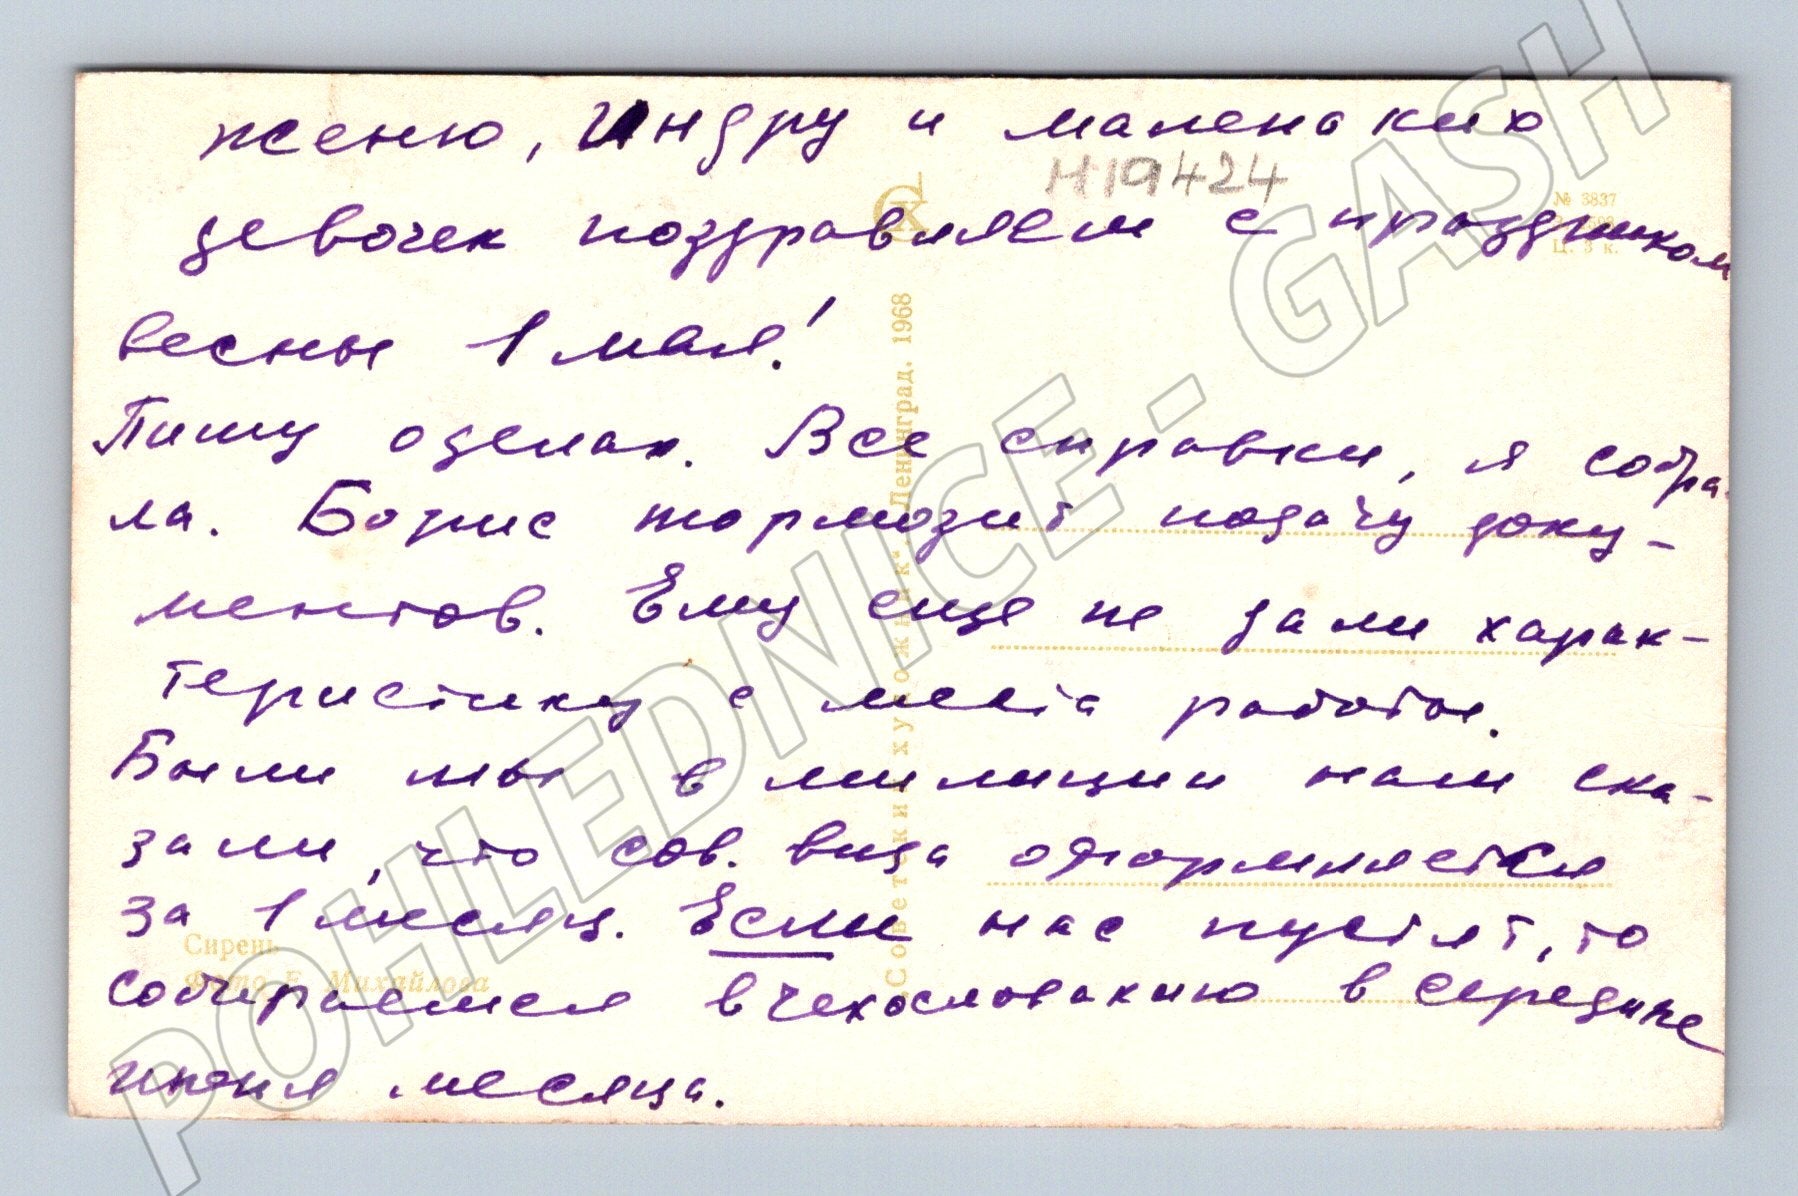 женю, Индру и маленьких
Н19424
девочек поздравляем с праздником
весны 1 мая!
Пишу о делах. Все справки, я собра-
ла. Борис тормозит подачу доку-
ментов. Ему еще не дали харак-
теристику с места работы.
Были мы в милиции нам ска-
зали, что сов. виза оформляется
за 1 месяц. Если нас пустят, то
собираемся в Чехословакию в середине
июня месяца.
№ 3837
Ц. 3 к.
„Советский художник". Ленинград. 1968
Сирень
Фото Е. Михайлова
POHLEDNICE - GASH